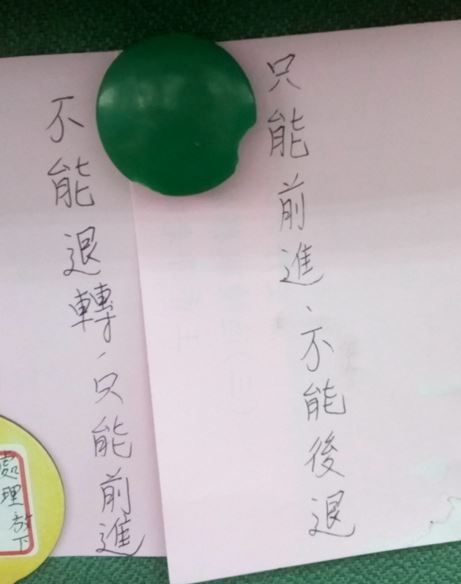 只能前進、不能後退
不能退轉，只能前進
處理放下